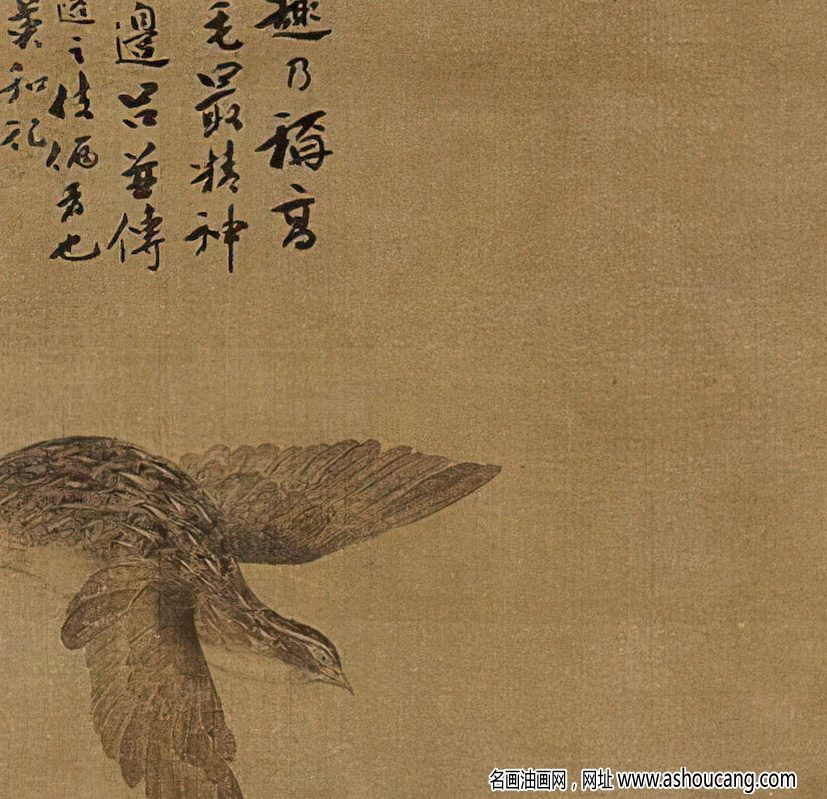 趣乃稱高
毛最精神
邊呂並傳
之技倆者也
葉和記
名画油画网，网址 www.ashoucang.com